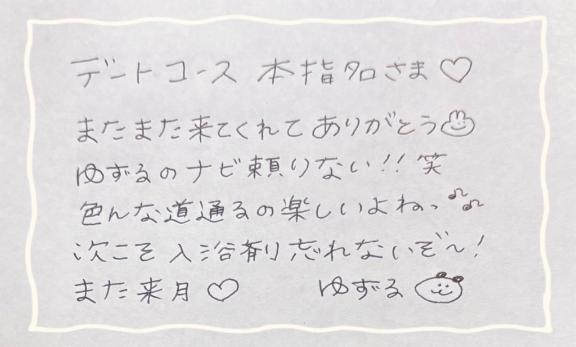 デントコース 本指名さま♡
またまた来てくれてありがとう
ゆずるのナビ頼りない!!笑
色んな道通るの楽しいよねっ♫
次こそ入浴剤忘れないぞ〜!
また来月♡ ゆずる